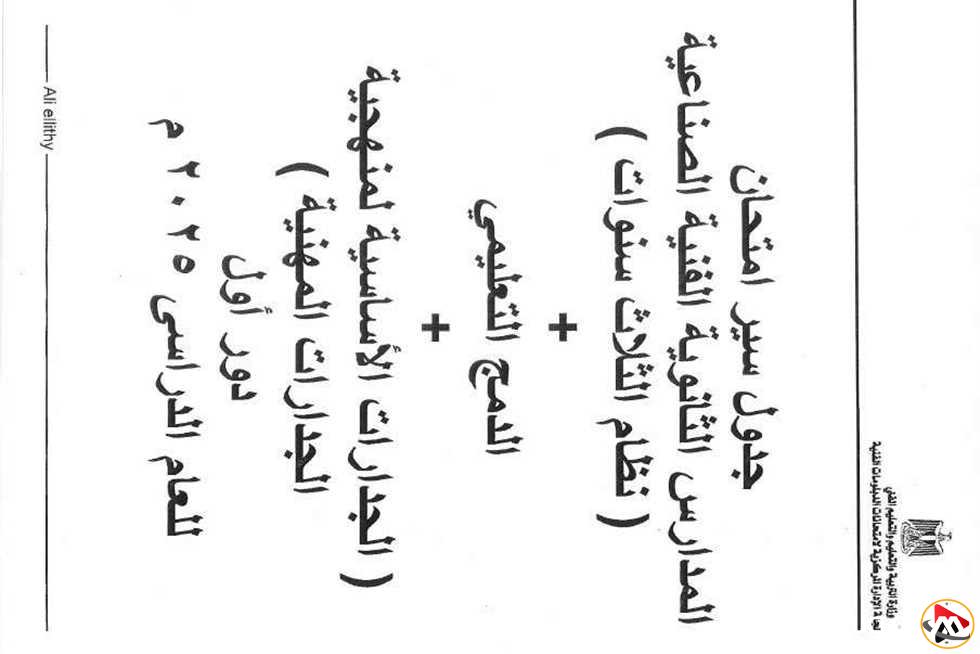 وزارة التربية والتعليم والتعليم الفني
الإدارة المركزية لامتحانات الدبلومات الفنية
جدول سير امتحان
المدارس الثانوية الفنية الصناعية
( نظام الثلاث سنوات )
+
الدمج التعليمي
+
( الجدارات الأساسية لمنهجية
الجدارات المهنية )
دور أول
للعام الدراسى ٢٠٢٥ م
Ali ellithy